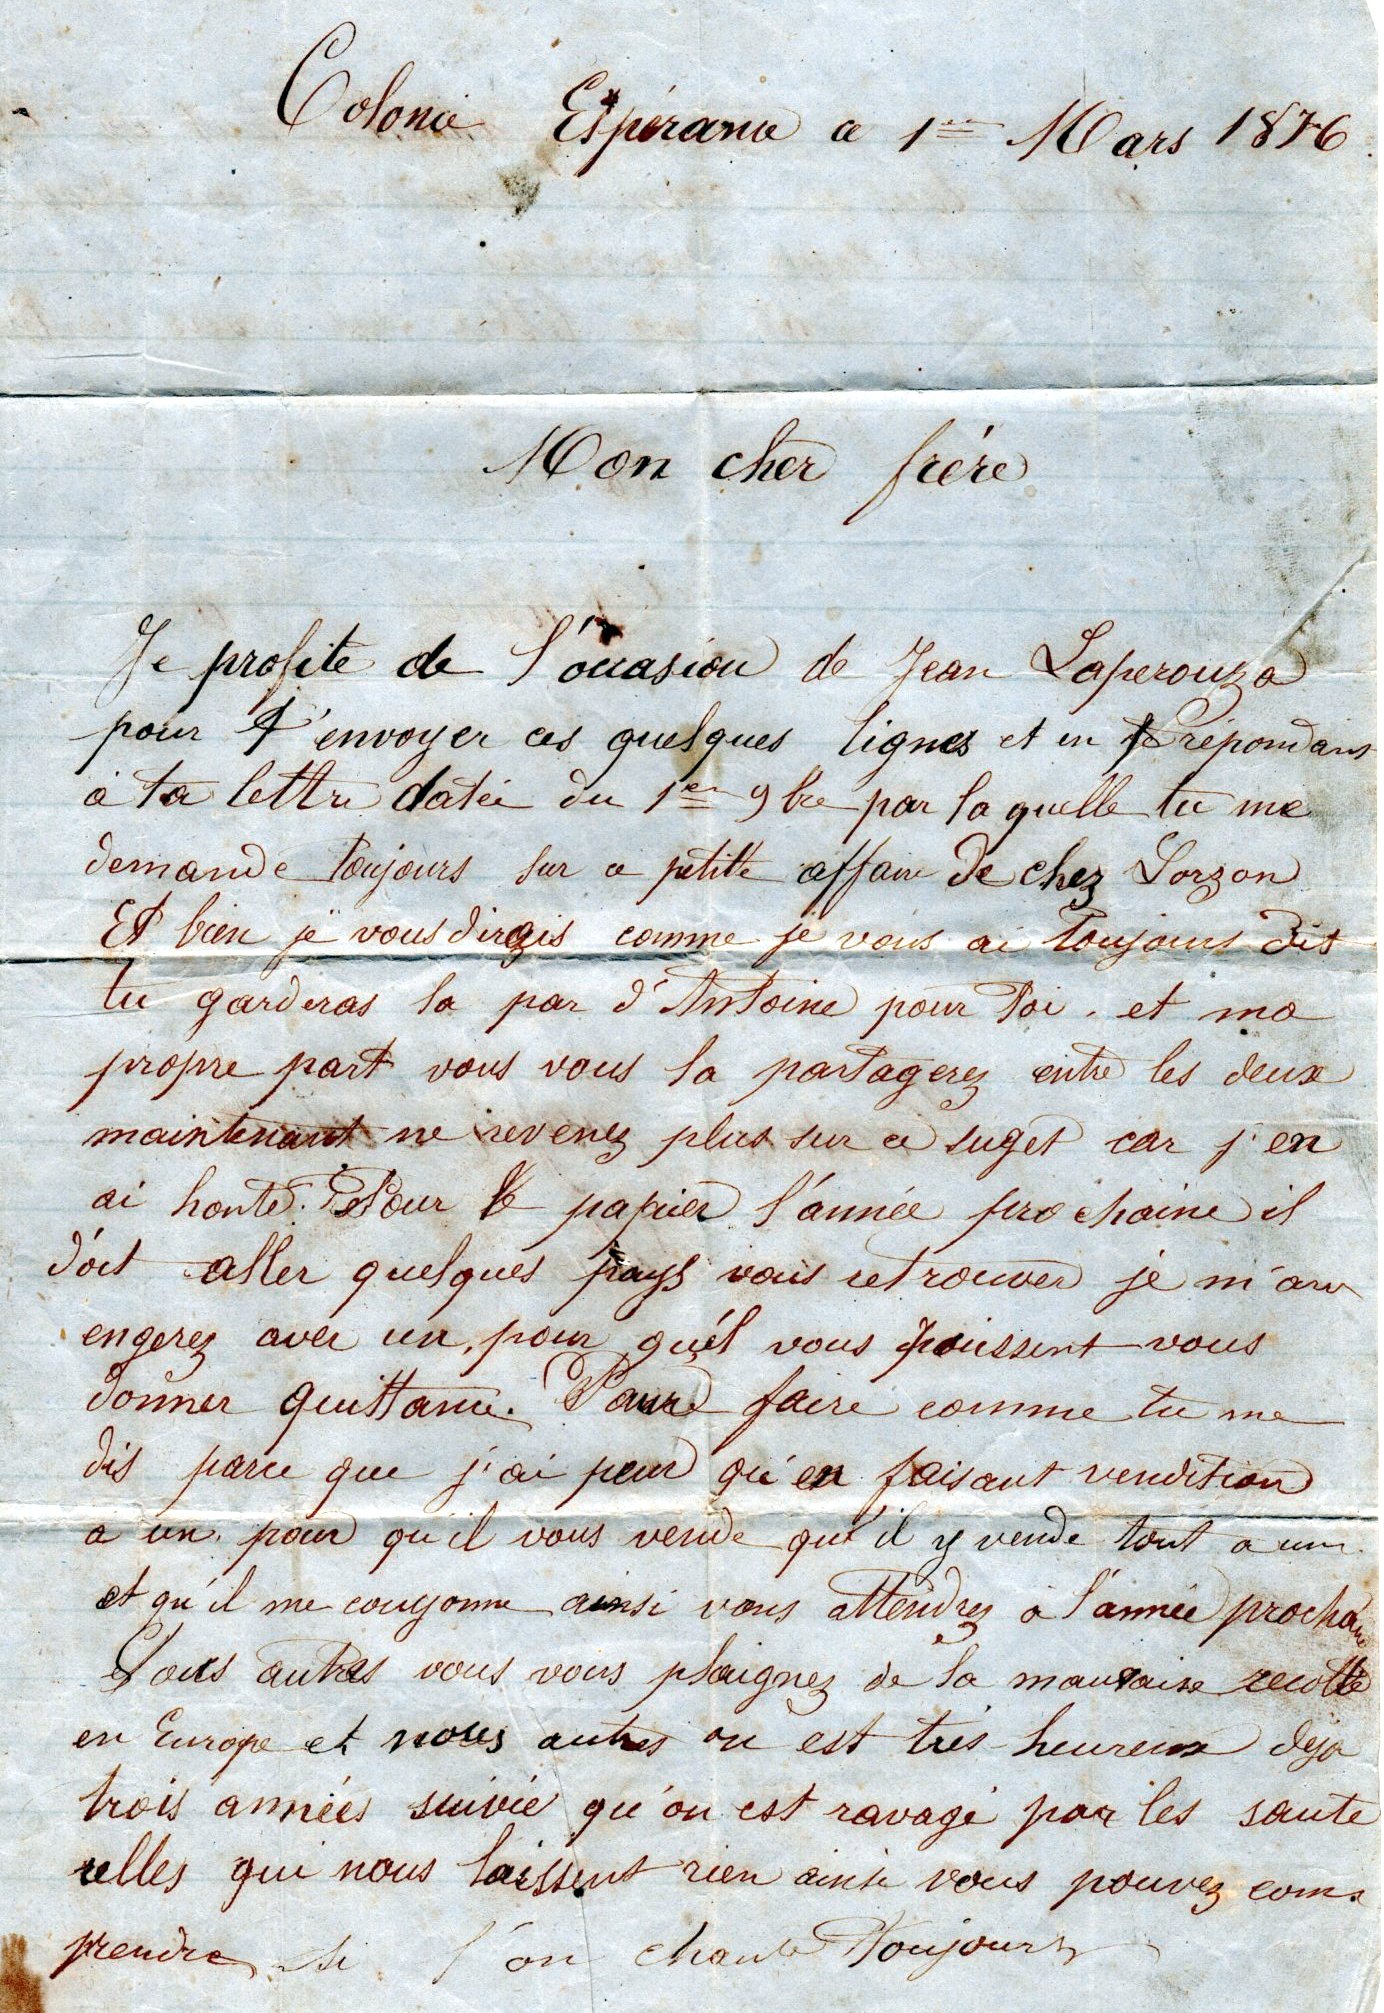 Colonie Espérance ce 1er Mars 1876
Mon cher frère
Je profite de l'occasion de Jean Laperouza
pour t'envoyer ces quelques lignes et en te répondant
à ta lettre datée du 1er 9bre par laquelle tu me
demande toujours sur ce petitte affaire de chez Lorzon
Et bien je vous dirais comme je vous ai toujours dit
tu garderas la par d'Antoine pour toi. et ma
propre part vous vous la partagerez entre les deux
maintenant ne revenez plus sur ce suget car j'en
ai honte. Pour le papier l'année prochaine il
doit aller quelques pays vous retrouver je m'arr
engerez avec un, pour qu'el vous puissent vous
donner quittance. Pour faire comme tu me
dis parce que j'ai peur qu'en faisant vendition
a un pour qu'il vous vende qu'il y vende tout a un
et qu'il me couyonne ainsi vous attendrez à l'année prochaine
Vous autres vous vous plaignez de la mauvaise recolte
en Europe et nous autres on est très heureux deja
trois années suivie qu'on est ravagé par les saute
relles qui nous laissent rien ainsi vous pouvez com
prendre si l'on chante toujours